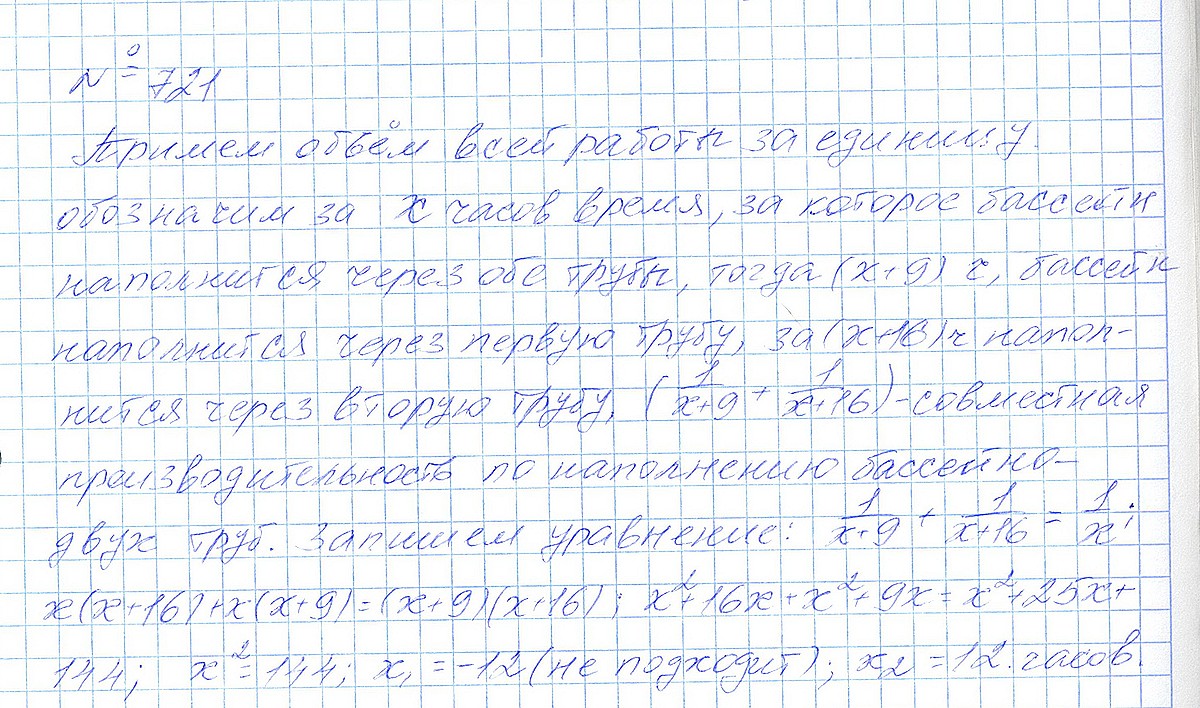 № 721
Примем объём всей работы за единицу.
обозначим за x часов время, за которое бассейн
наполнится через обе трубы, тогда (x+9) ч, бассейн
наполнится через первую трубу, за (x+16) ч напол-
нится через вторую трубу, (1/(x+9) + 1/(x+16)) - совместная
производительность по наполнению бассейно-
двух труб. Запишем уравнение: 1/(x+9) + 1/(x+16) = 1/x;
x(x+16)+x(x+9)=(x+9)(x+16); x²+16x+x²+9x=x²+25x+
144; x²=144; x₁=-12 (не подходит); x₂=12 часов.